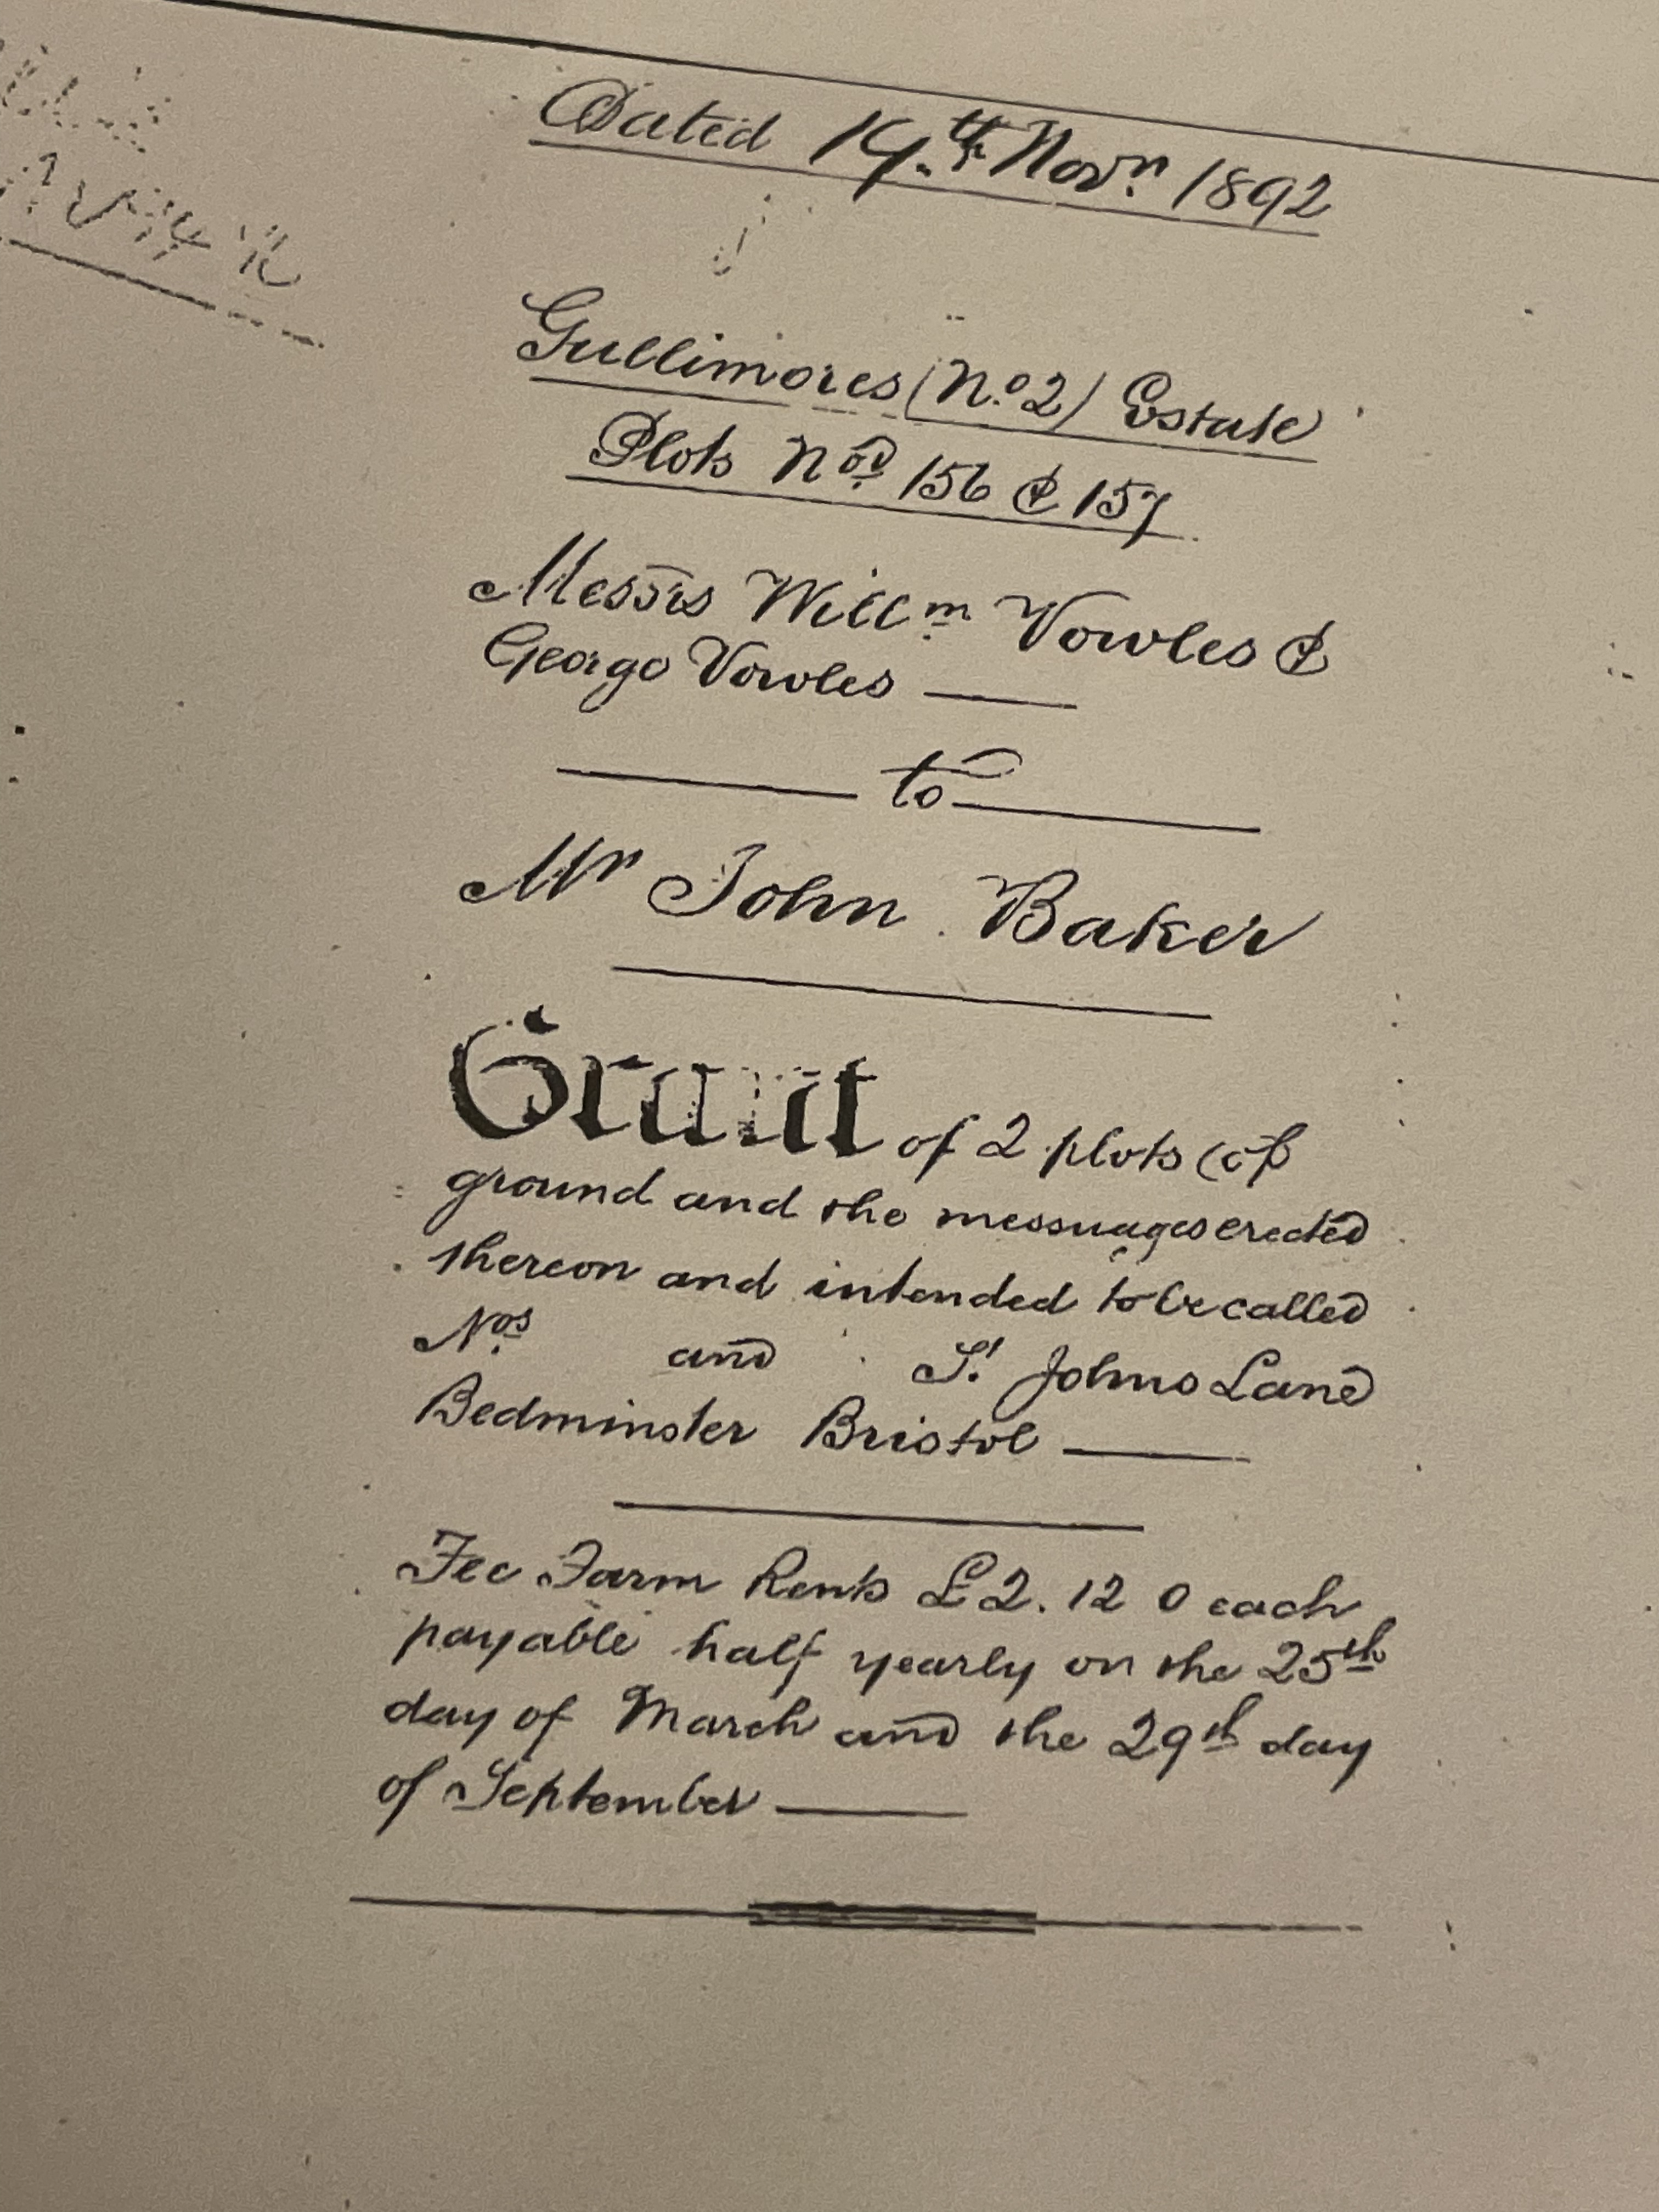 Dated 14th Novr 1892
Gullimores (No 2) Estate
Plots Nos 156 & 157
Messrs Willm Vowles &
George Vowles
to
Mr John Baker
Grant of 2 plots of
ground and the messuages erected
thereon and intended to be called
Nos and St Johns Lane
Bedminster Bristol
Fee Farm Rents £2. 12 0 each
payable half yearly on the 25th
day of March and the 29th day
of September